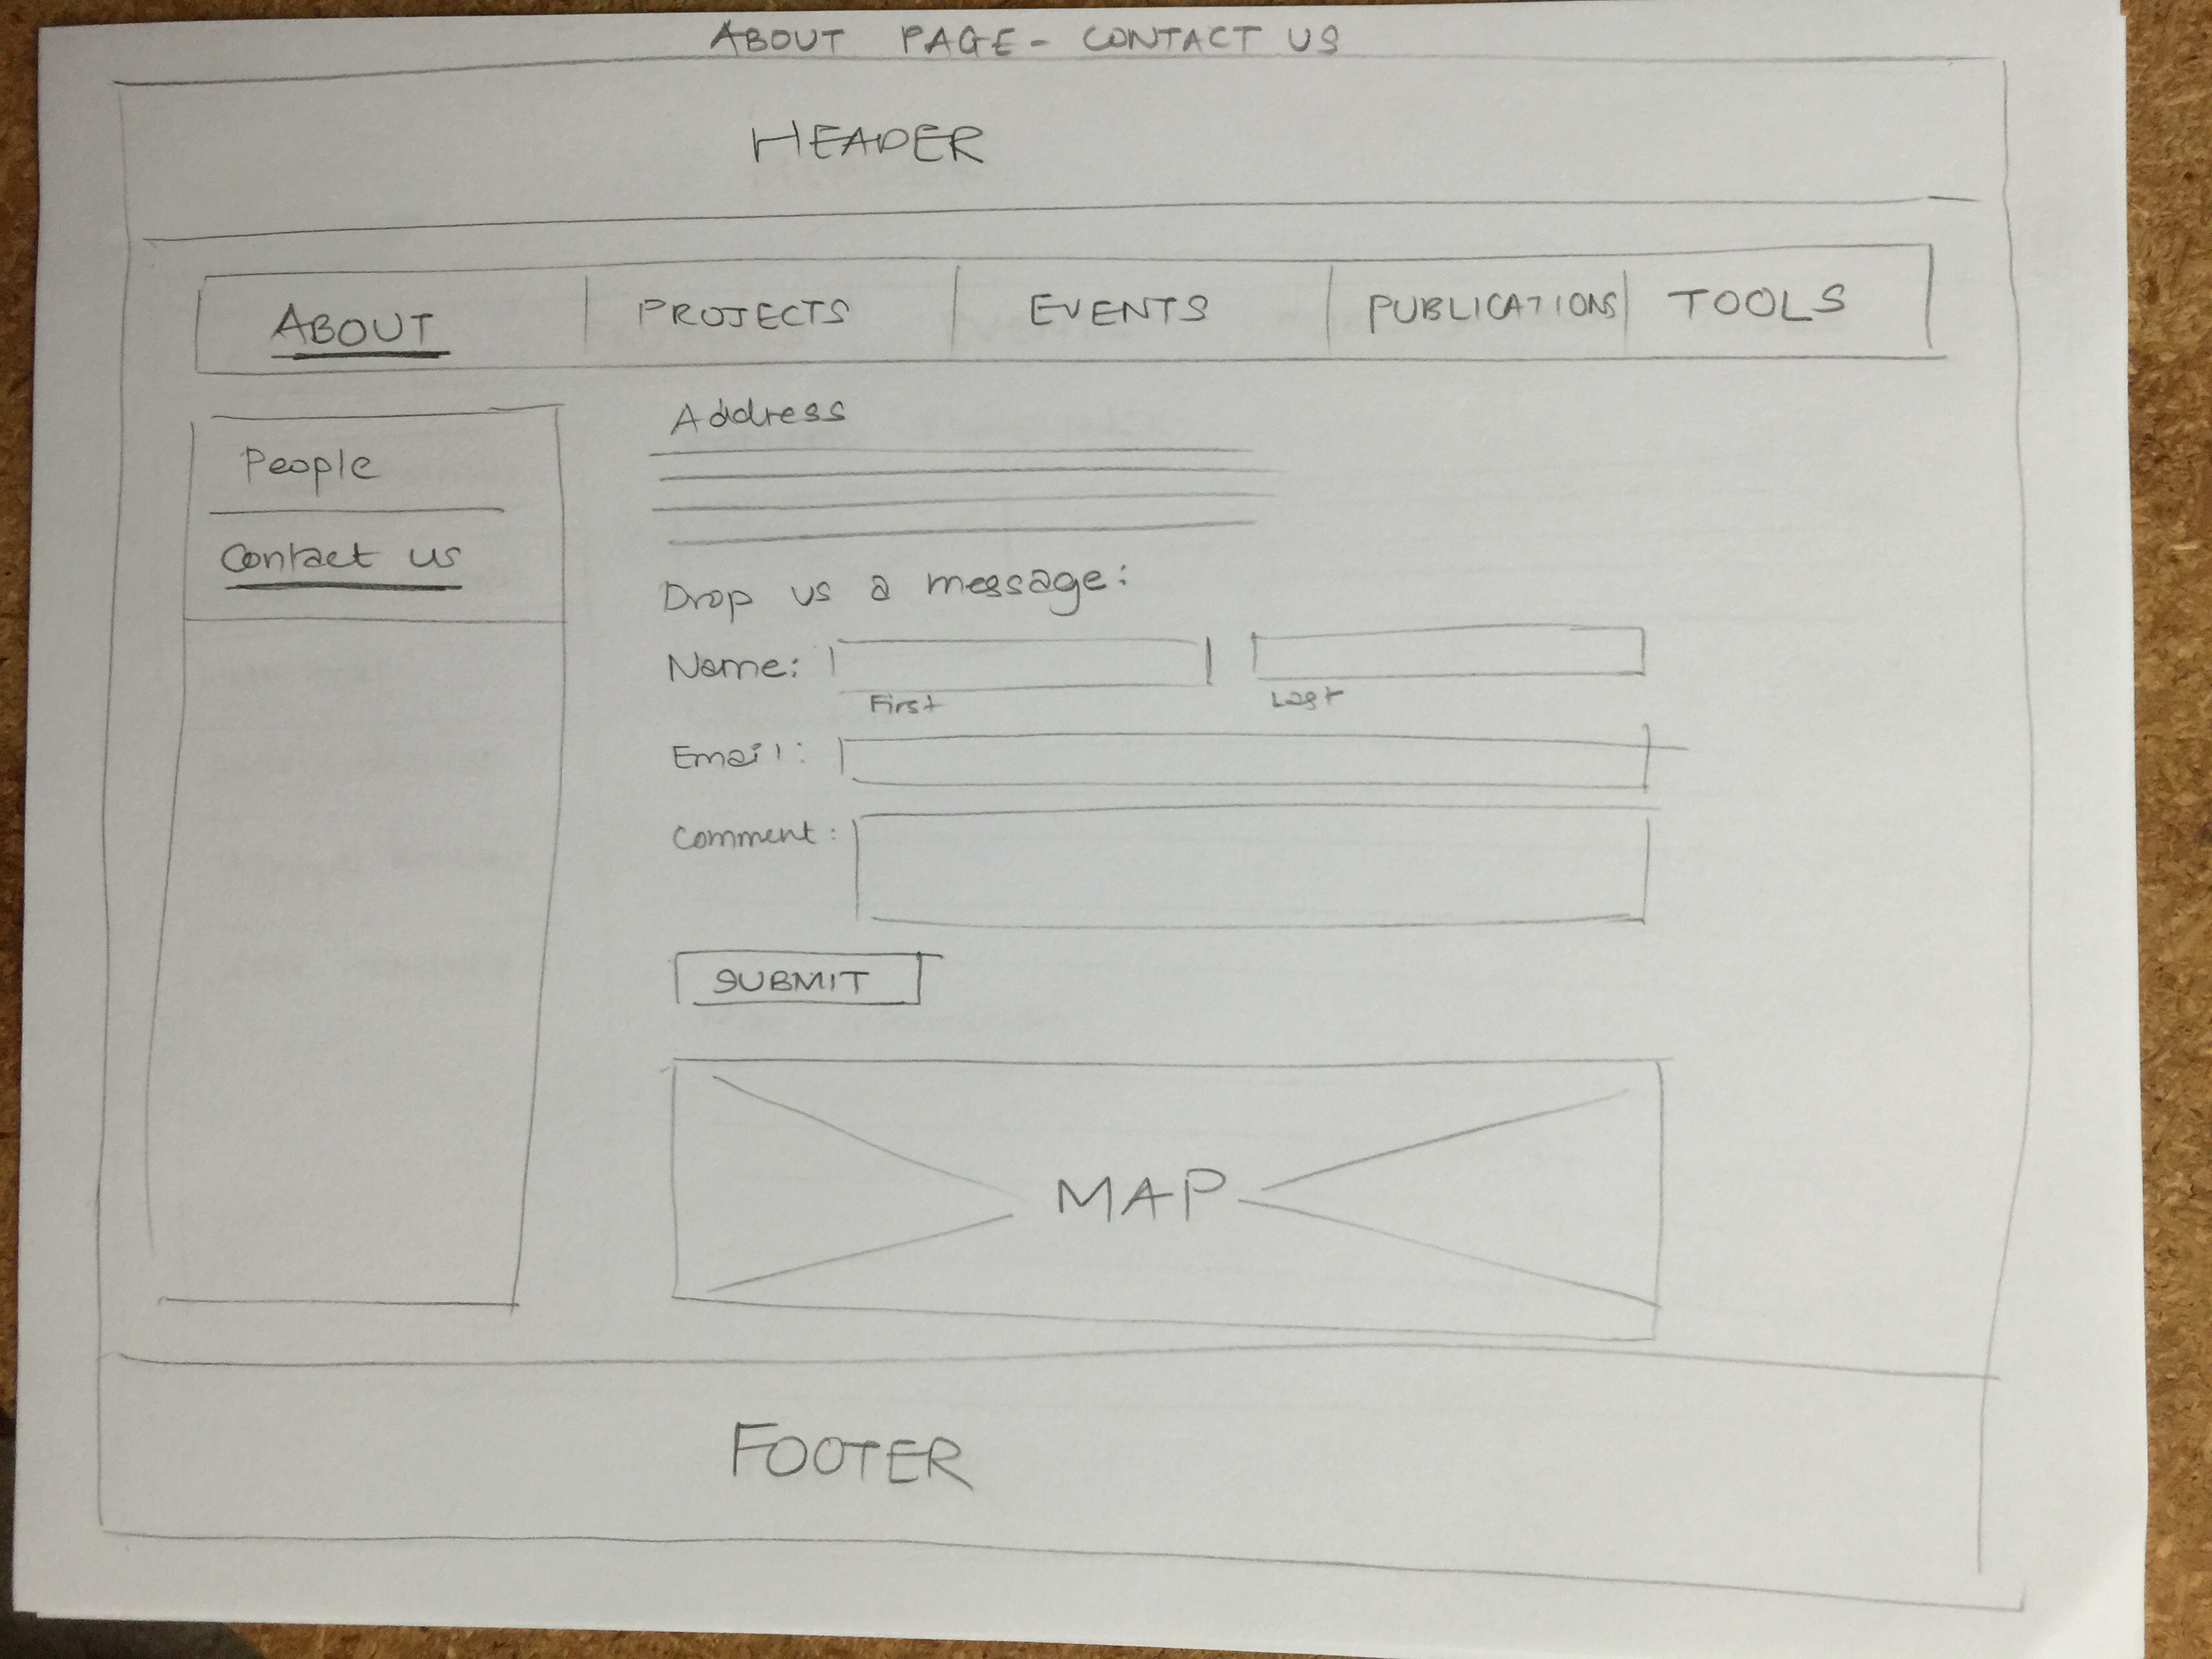 ABOUT PAGE - CONTACT US
HEADER
ABOUT PROJECTS EVENTS PUBLICATIONS TOOLS
People
Contact us
Address
Drop us a message:
Name:
First Last
Email:
Comment:
SUBMIT
MAP
FOOTER